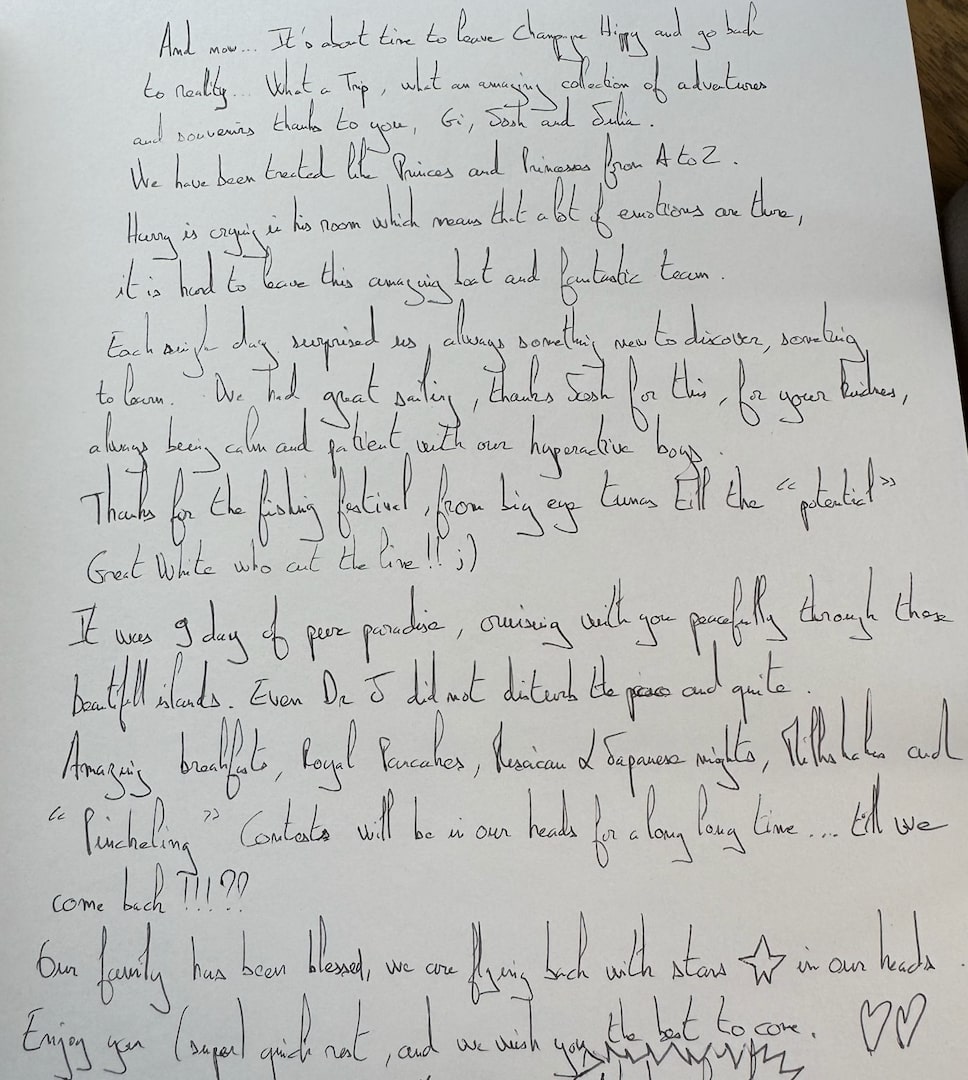 And now... It's about time to leave Champagne Hippy and go back
to reality... What a Trip, what an amazing collection of adventures
and souvenirs thanks to you, Gi, Josh and Julia.
We have been treated like Princes and Princesses from A to Z.
Harry is crying in his room which means that a lot of emotions are there,
it is hard to leave this amazing boat and fantastic team.
Each single day surprised us, always something new to discover, something
to learn. We had great sailing, thanks Josh for this, for your kindness,
always being calm and patient with our hyperactive boys.
Thanks for the fishing festival, from big eye tunas till the "potential"
Great White who cut the line!! ;)
It was 9 day of peer paradise, cruising with you peacefully through these
beautifull islands. Even Dr J did not disturb the peace and quite.
Amazing breakfasts, Royal Pancakes, Mexican & Japanese nights, Milkshakes and
" " Contests will be in our heads for a long long time.... till we
come back !!!??
Our family has been blessed, we are flying back with stars in our heads.
Enjoy your (super) quick rest, and we wish you the best to come.